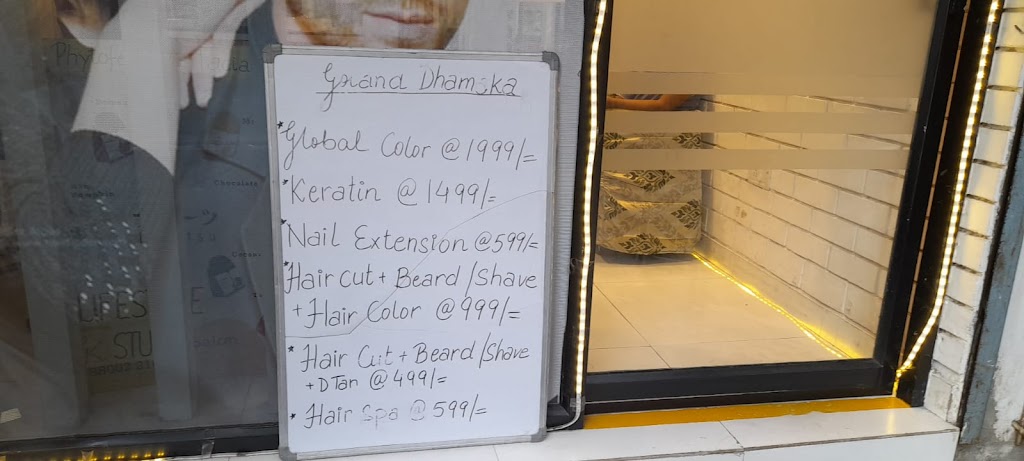 Grand Dhamaka
* Global Color @ 1999/=
* Keratin @ 1499/=
* Nail Extension @ 599/=
* Hair cut + Beard /Shave
+ Hair Color @ 999/=
* Hair Cut + Beard /Shave
+ D Tan @ 499/=
* Hair Spa @ 599/=
Chocolate
LIFES E
STU